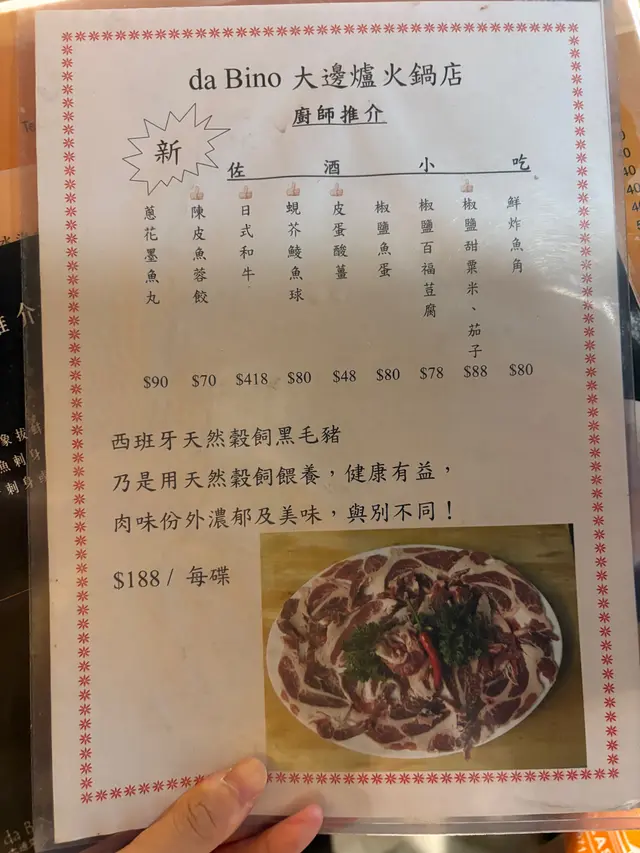 da Bino 大邊爐火鍋店
廚師推介
新
佐酒小吃
鮮炸魚角
椒鹽甜粟米、茄子
椒鹽百福荳腐
椒鹽魚蛋
皮蛋酸薑
蜆芥鯪魚球
日式和牛
陳皮魚蓉餃
蔥花墨魚丸
$90 $70 $418 $80 $48 $80 $78 $88 $80
西班牙天然穀飼黑毛豬
乃是用天然穀飼餵養，健康有益，
肉味份外濃郁及美味，與別不同！
$188 / 每碟